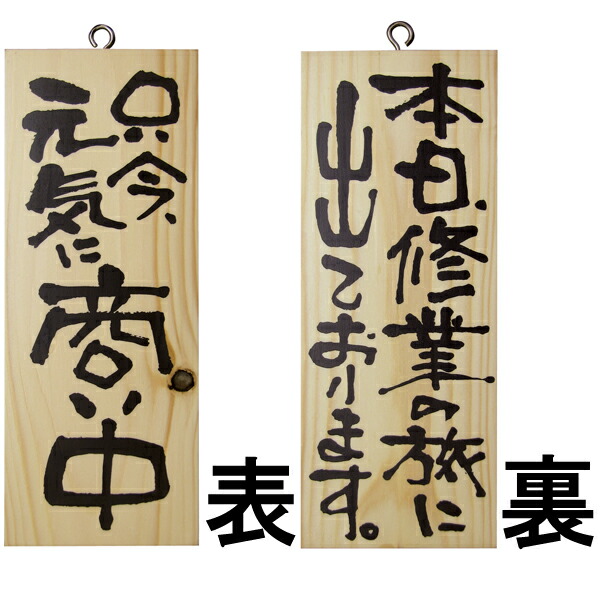 只今、
元気に
商い中
表
本日、修業の旅に
出ております。
裏